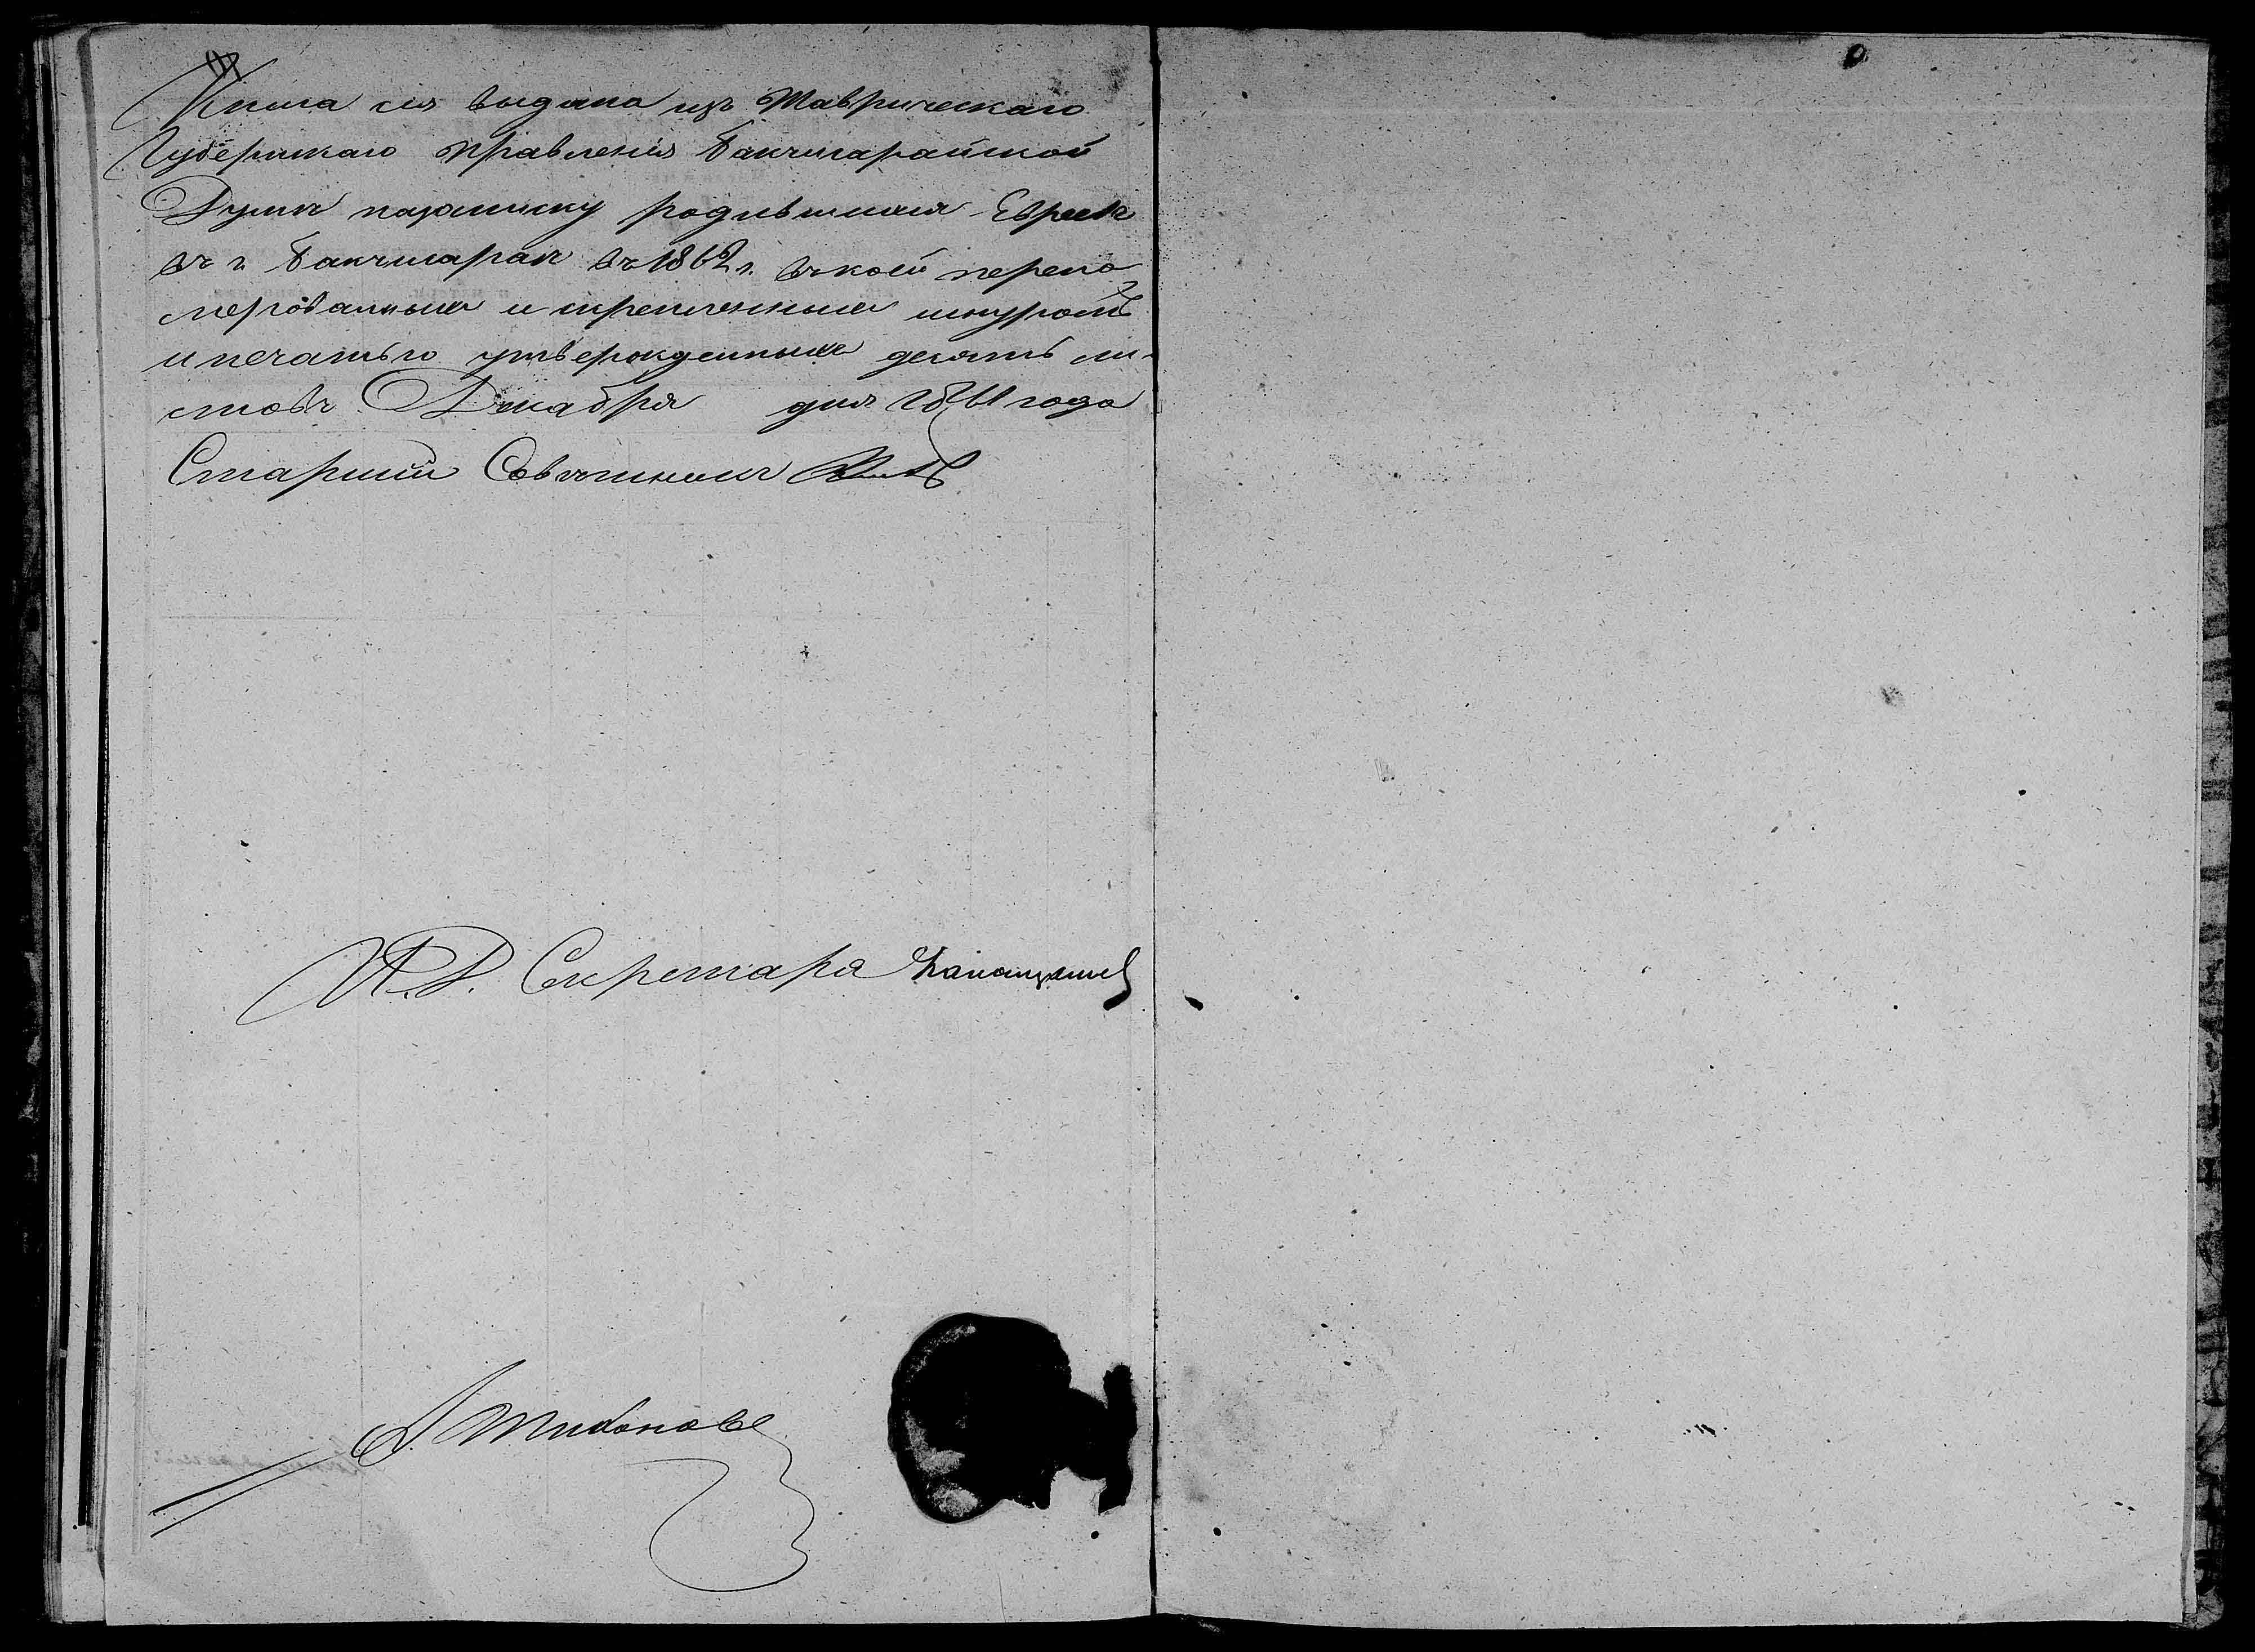 Книга сія выдана изъ Таврическаго
Губернскаго Правленія Бакчисарайской
Думѣ на записку родившихся Евреевъ
въ г. Бакчисараѣ въ 1862 г. въ коей перено
мерованныхъ и скрепленныхъ шнуромъ
и печатью утвержденныхъ десять ли-
стовъ Декабря дня 1861 года
Старшій Совѣтникъ
И. Д. Секретаря
А Тихоновъ